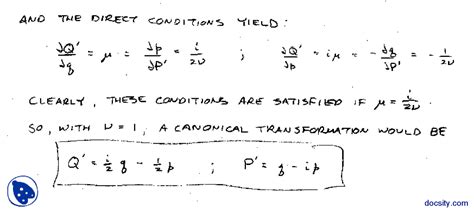 AND THE DIRECT CONDITIONS YIELD:
∂Q'/∂q = μ = ∂p/∂P' = i/2ν ; ∂Q'/∂p = iμ = -∂q/∂P' = -1/2ν
CLEARLY, THESE CONDITIONS ARE SATISFIED IF μ = i/2ν.
SO, WITH ν = 1, A CANONICAL TRANSFORMATION WOULD BE
Q' = i/2 q - 1/2 p ; P' = q - ip
docsity.com